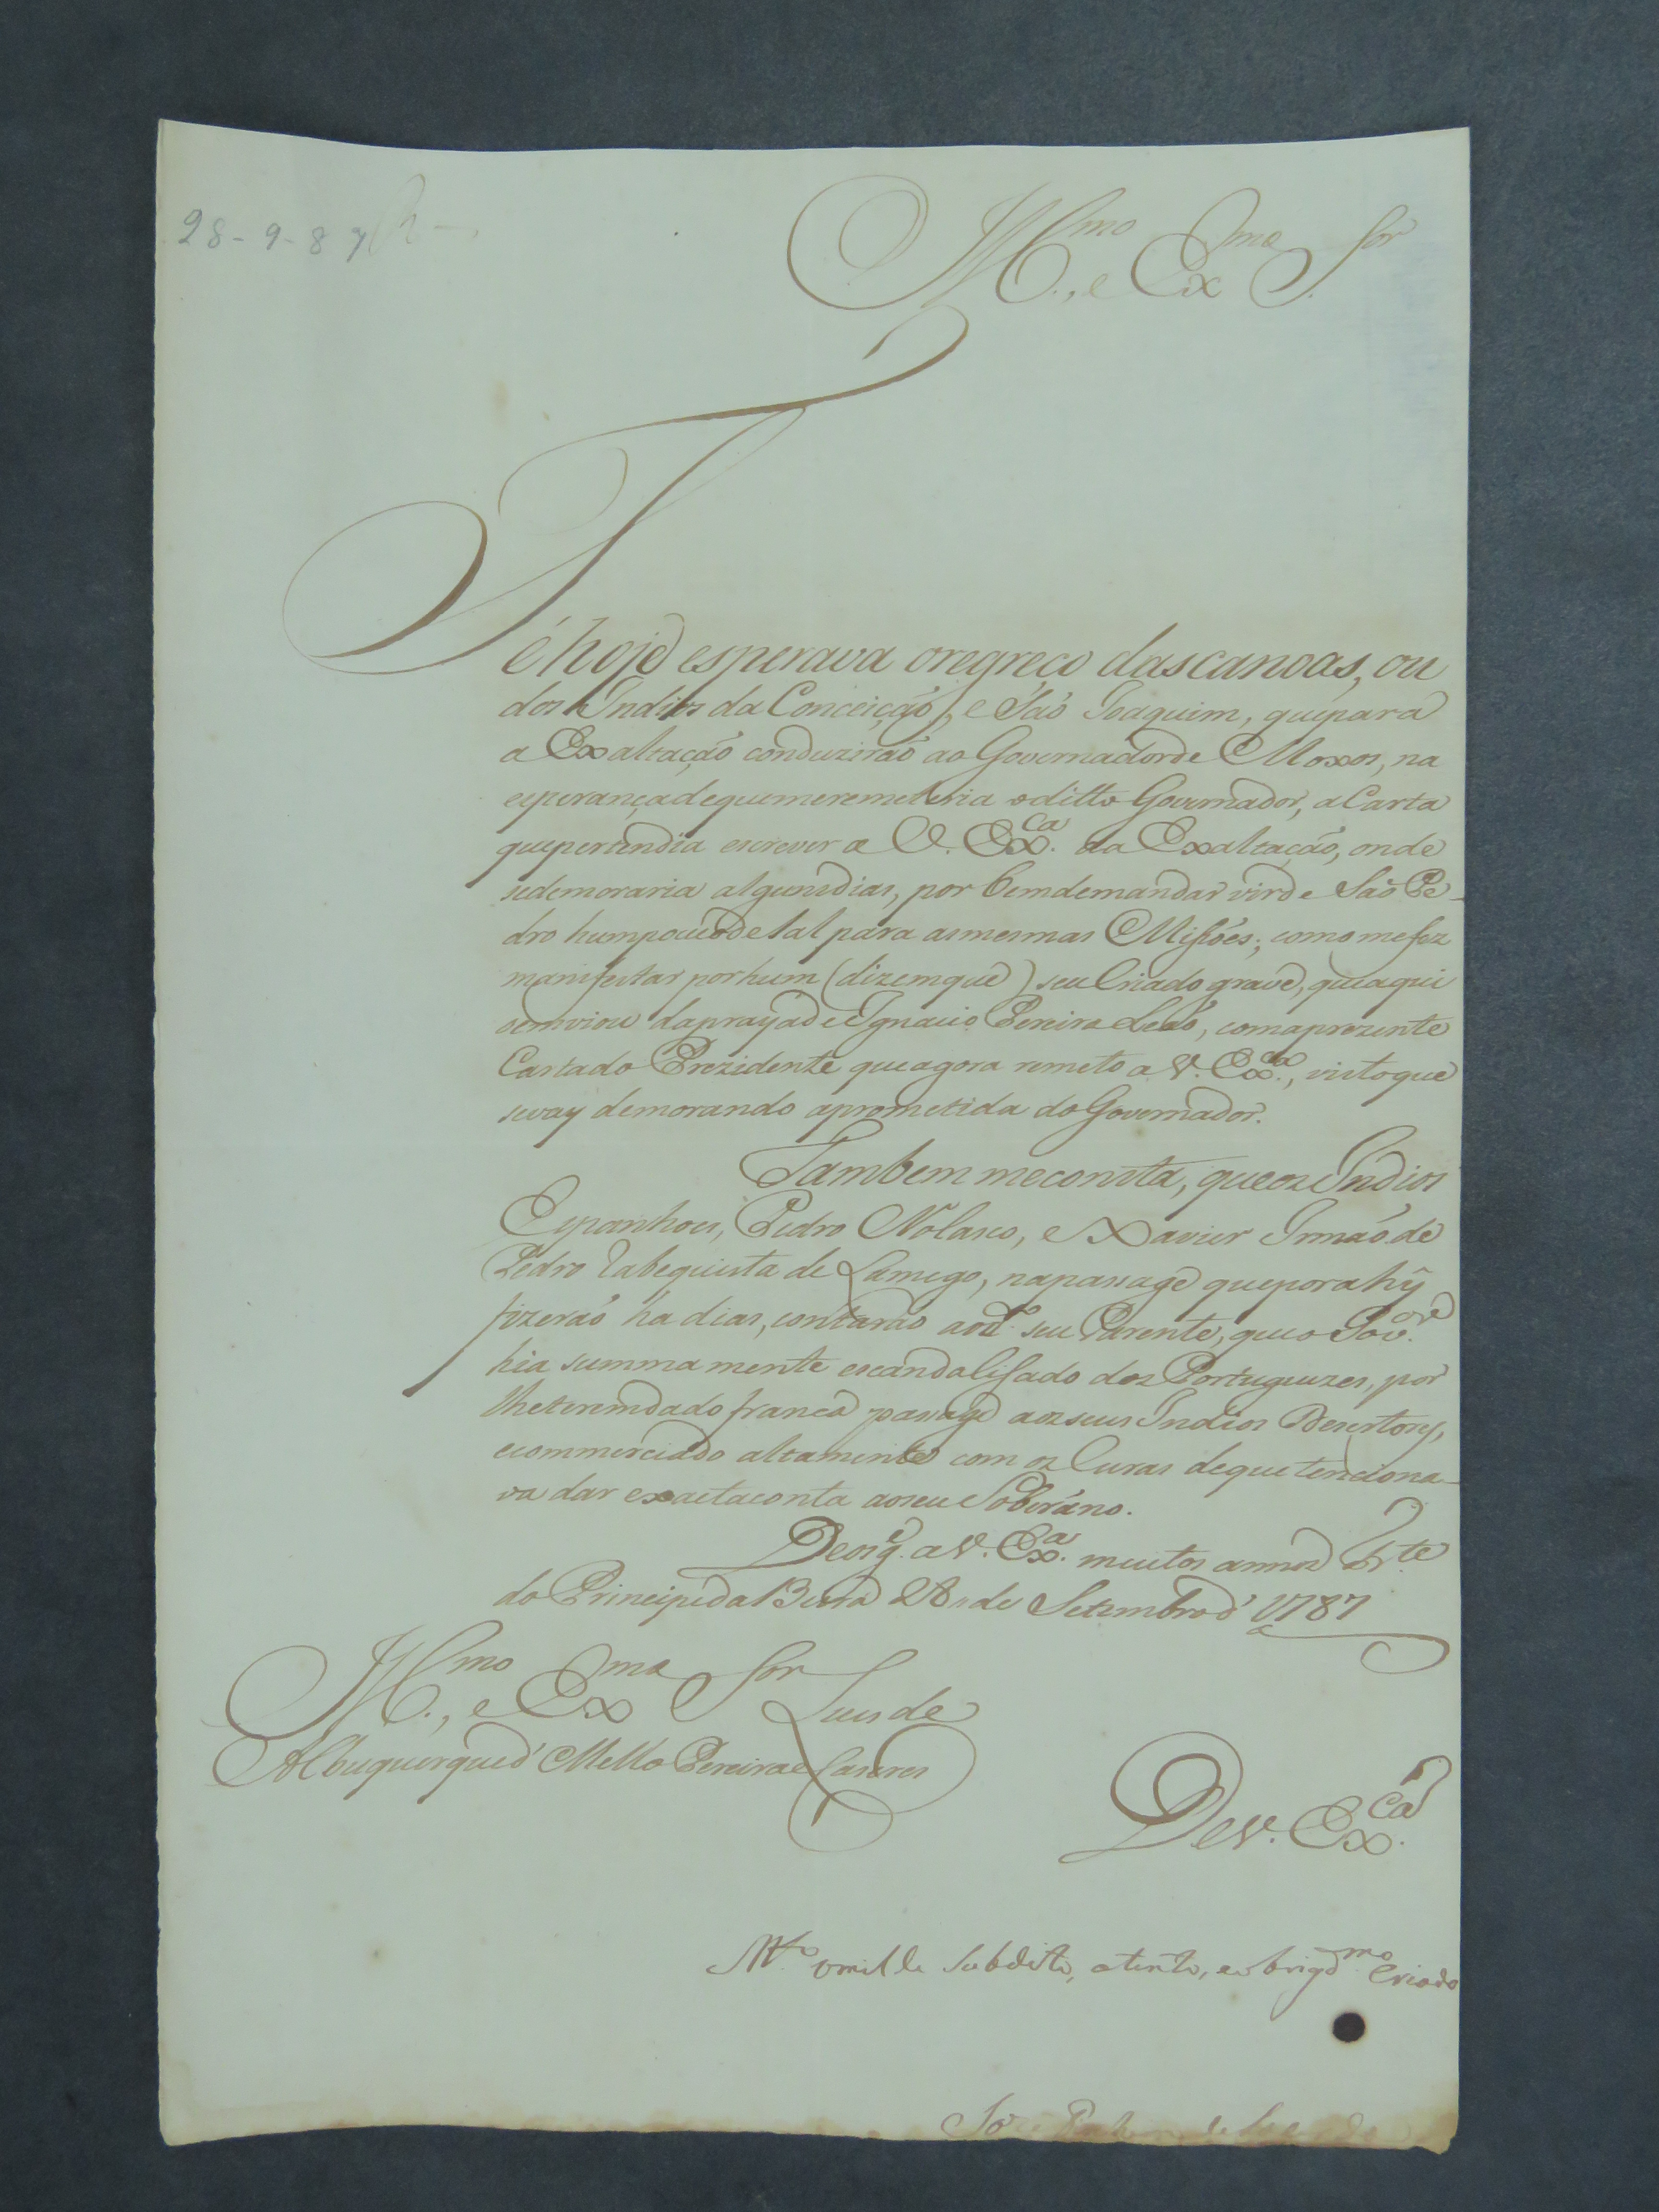 28-9-87
Ill.mo, e Ex.mo S.or
Té hoje esperava oregreço dascanoas, ou
dos Indios da Conceição, e São Joaquim, quepara
a Exaltação conduzirão ao Governadorde Moxos, na
esperança dequemeremeteria oditto Governador, a Carta
quepertendia escrever a V. Ex.ca da Exaltação, onde
sedemoraria algunsdias, por bemdemandar vir de São Pe-
dro humpoucodeSal para asmesmas Missoés; como mefez
manifestar porhum (dizemque) seu Criado grave, queaqui
oenviou daprayade Ignacio Pereira Leaõ, comaprezente
Cartado Prezidente, queagora remeto a V. Ex.ca, vistoque
sevay demorando aprometida do Governador.
Tambem meconsta, queoz Indios
Espanhoes, Pedro Nolasco, e Xavier Irmaõ de
Pedro Rabequista de Lamego, napassage queporahÿ
fizeraõ ha dias, contaraõ aod.o seu Parente, queo Gov.or
hia summamente escandalisado doz Portuguezes, por
lheteremdado franca passage aozseus Indios Desertores,
ecommerciado altamente com oz Curas dequetenciona-
va dar exactaconta aoseu Soberano.
Deosg.e a V. Ex.a muitos annos Fr.te
do Principeda Beira 28 de Setembrod' 1787
Ill.mo, e Ex.mo S.or Luis de
Albuquerqued' Mello Pereirae Caseres
DeV. Ex.ca
M.to umilde Subdito, atento, eobrigd.mo Criado